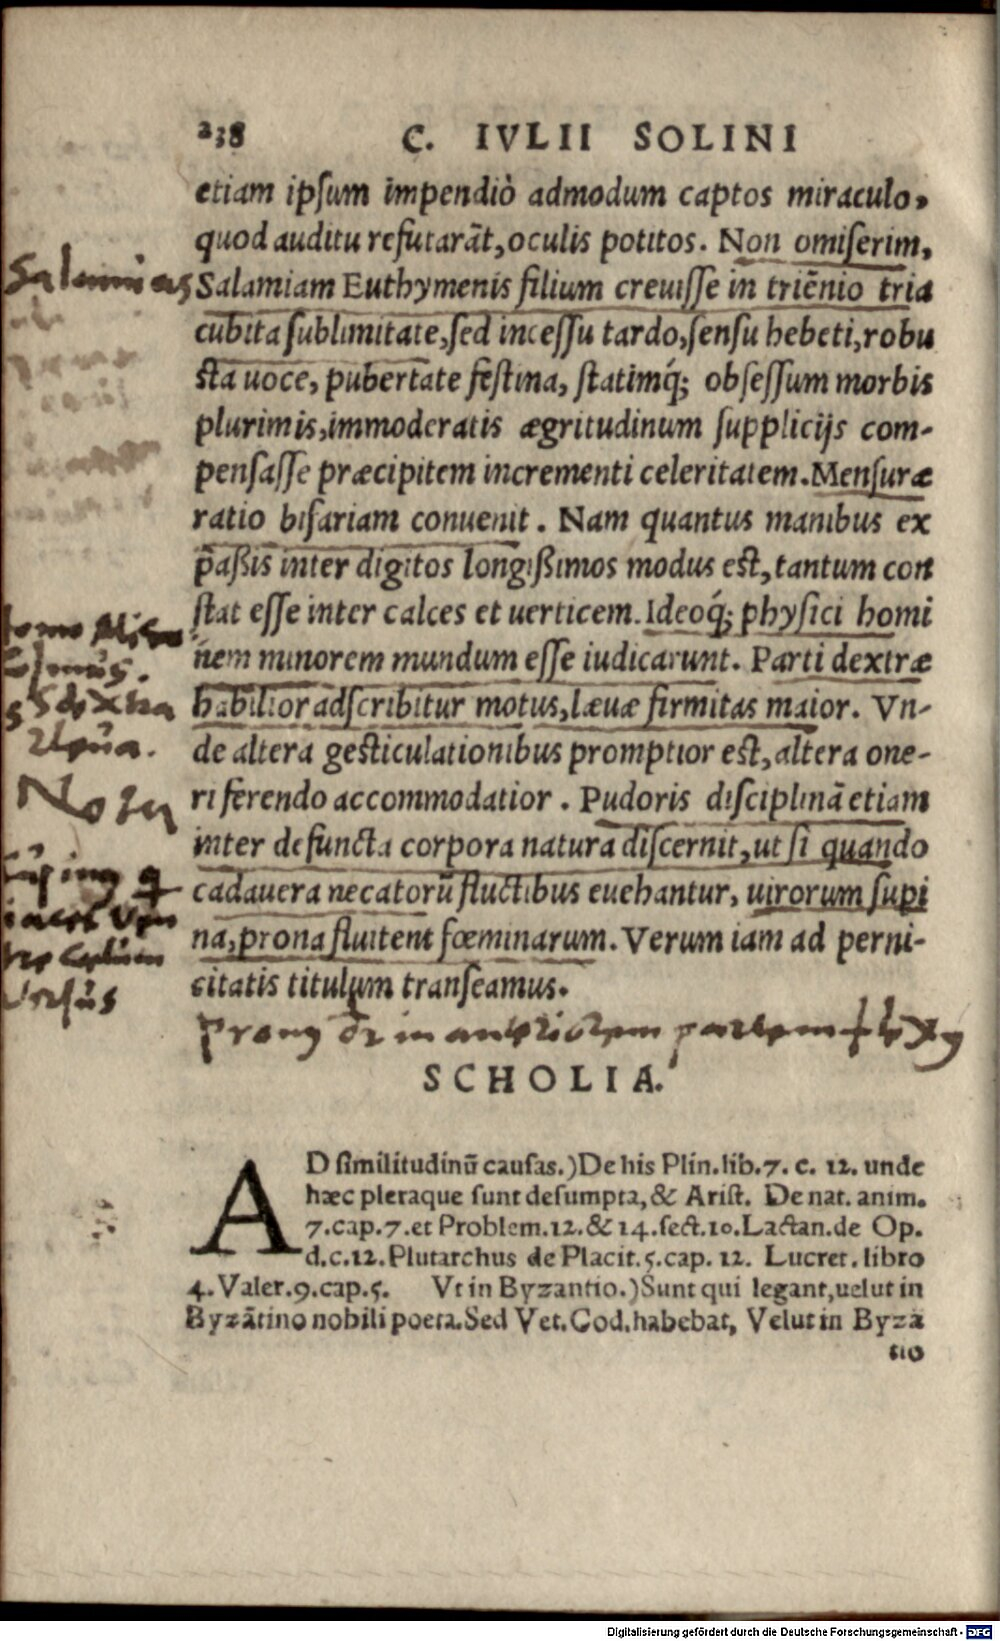 238 C. IVLII SOLINI
etiam ipsum impendiò admodum captos miraculo,
quod auditu refutarãt, oculis potitos. Non omiserim,
Salaminas
Salamiam Euthymenis filium creuisse in triẽnio tria
cubita sublimitate, sed incessu tardo, sensu hebeti, robu
sta uoce, pubertate festina, statimq́; obsessum morbis
plurimis, immoderatis ægritudinum supplicijs com-
pensasse præcipitem incrementi celeritatem. Mensuræ
ratio bifariam conuenit. Nam quantus manibus ex
passis inter digitos longissimos modus est, tantum con
stat esse inter calces et uerticem. Ideoq́; physici homi
nem minorem mundum esse iudicarunt. Parti dextræ
habilior adscribitur motus, læuæ firmitas maior. Vn-
de altera gesticulationibus promptior est, altera one-
ri ferendo accommodatior. Pudoris disciplinã etiam
Nota
inter defuncta corpora natura discernit, ut si quando
cadauera necatorũ fluctibus euehantur, uirorum supi
na, prona fluitent fœminarum. Verum iam ad perni-
citatis titulum transeamus.
in anteriorem partem
SCHOLIA.
AD similitudinũ causas.) De his Plin. lib. 7. c. 12. unde
hæc pleraque sunt desumpta, & Arist. De nat. anim.
7. cap. 7. et Problem. 12. & 14. sect. 10. Lactan. de Op.
d. c. 12. Plutarchus de Placit. 5. cap. 12. Lucret. libro
4. Valer. 9. cap. 5. Vt in Byzantio.) Sunt qui legant, uelut in
Byzãtino nobili poeta. Sed Vet. Cod. habebat, Velut in Byzã
tio
Digitalisierung gefördert durch die Deutsche Forschungsgemeinschaft - DFG